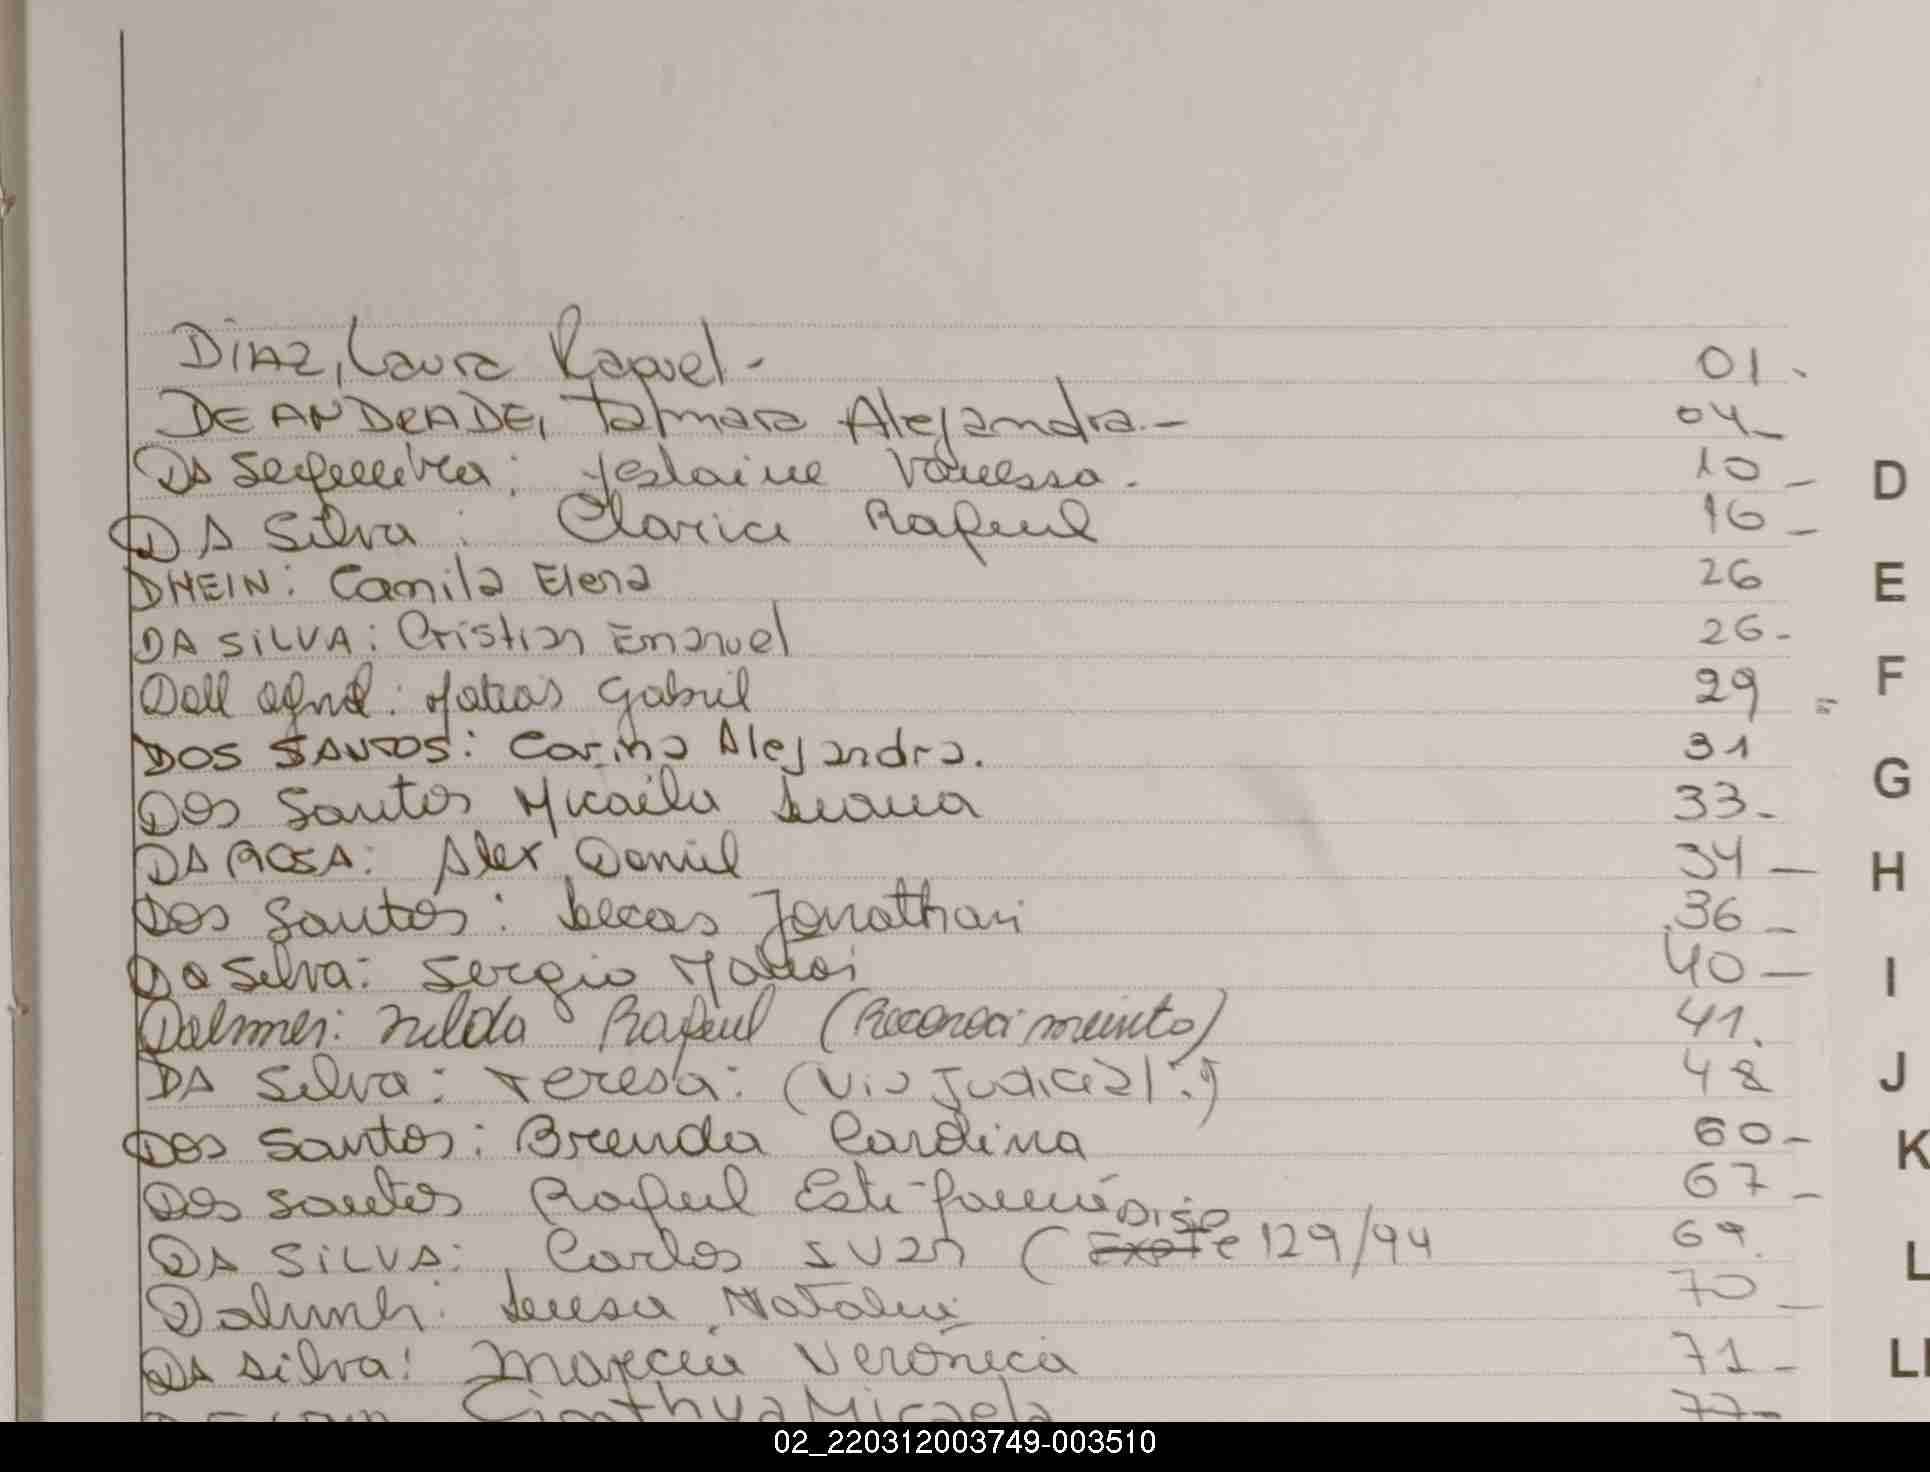 DIAZ, Laura Raquel - 01.
DE ANDRADE, Tamara Alejandra.- 04_
DA Sequeira: Yeslaine Vanessa. 10_
DA Silva: Clarice Raquel 16_
DHEIN: Camila Elena 26
DA SILVA: Cristian Emanuel 26-
Dell : Matías Gabriel 29
DOS SANTOS: Carina Alejandra. 31
DOS Santos Micaela Luana 33-
DA ROSA: Alex Daniel 34_
Dos Santos: Lucas Jonathan 36_
Da Silva: Sergio 40_
: Nilda Raquel (Reconocimiento) 41.
DA Silva: Teresa: (Via Judicial.) 48
Dos Santos: Brenda Carolina 60-
Dos Santos Raquel Estefania 67_
DA SILVA: Carlos IVAN ( Expte 129/94 69.
: Luisa Natalia 70_
DA Silva: Marcia Verónica 71-
Cinthya Micaela 77-
D
E
F
G
H
I
J
K
L
Ll
02_220312003749-003510